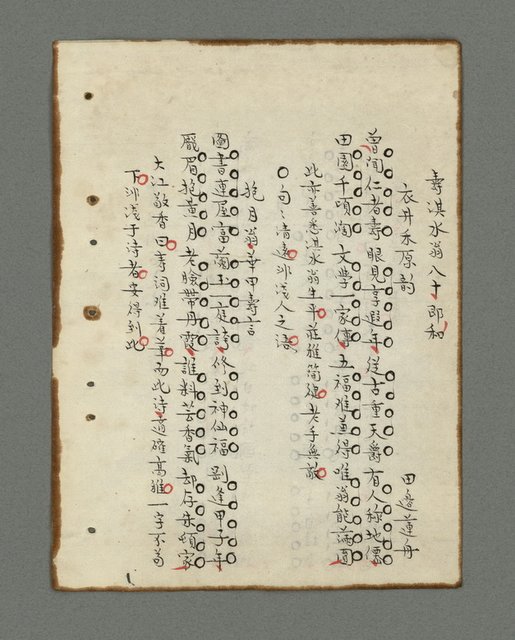 壽淇水翁八十即和
衣井禾原韵
田邊蓮舟
曾聞仁者壽眼見享遐年從古重天爵有人称地僊
田園千頃陶文學一家傳五福难兼得唯翁能滿圓
此亦善悉淇水翁生平莊雅简健老手無敵
句々清逸非浅人之语
抱月翁華甲壽言
圖書連屋富蘭玉一庭誇修到神仙福剛逢甲子年
厖眉抱黃月老臉帶丹霞誰料芸香氣却存朱頓家
大江敬香曰壽詞难着筆而此诗高確高雅一字不苟
下非浅于诗者安得到此